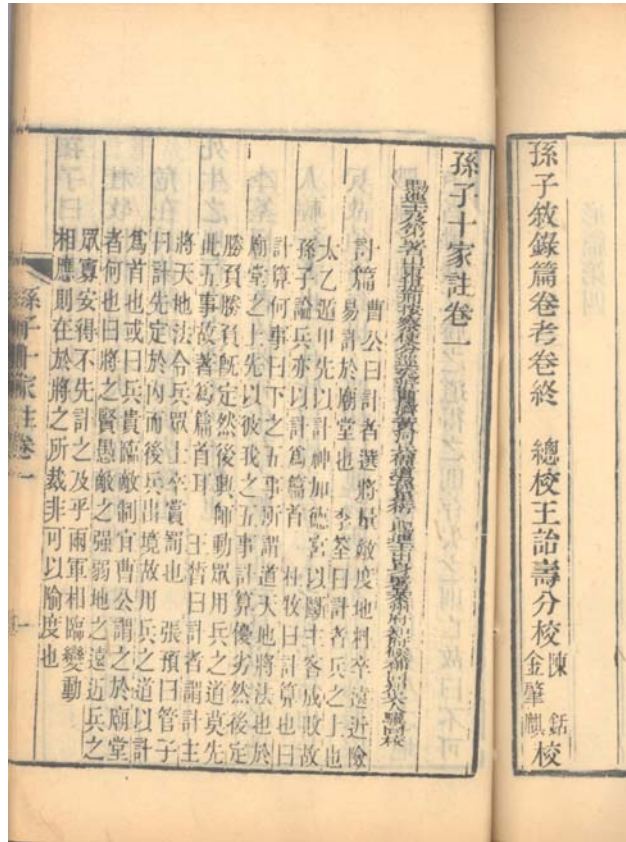 孫子敘錄篇卷考卷終 總校王詒壽分校 陳銛 金肇麒 校
孫子十家註卷一
計篇 曹公曰計者選將量敵度地料卒遠近險
易計於廟堂也 李筌曰計者兵之上也
太乙遁甲先以計神加德宮以斷主客成敗故
孫子論兵亦以計爲篇首 杜牧曰計算也曰
計算何事曰下之五事所謂道天地將法也於
廟堂之上先以彼我之五事計算優劣然後定
勝負勝負既定然後興師動眾用兵之道莫先
此五事故著爲篇首耳 王晳曰計者謂計主
將天地法令兵眾士卒賞罰也 張預曰管子
曰計先定於內而後兵出境故用兵之道以計
爲首也或曰兵貴臨敵制宜曹公謂計於廟堂
者何也曰將之賢愚敵之强弱地之遠近兵之
眾寡安得不先計之及乎兩軍相臨變動
相應則在於將之所裁非可以隃度也
孫子十家註卷一
一